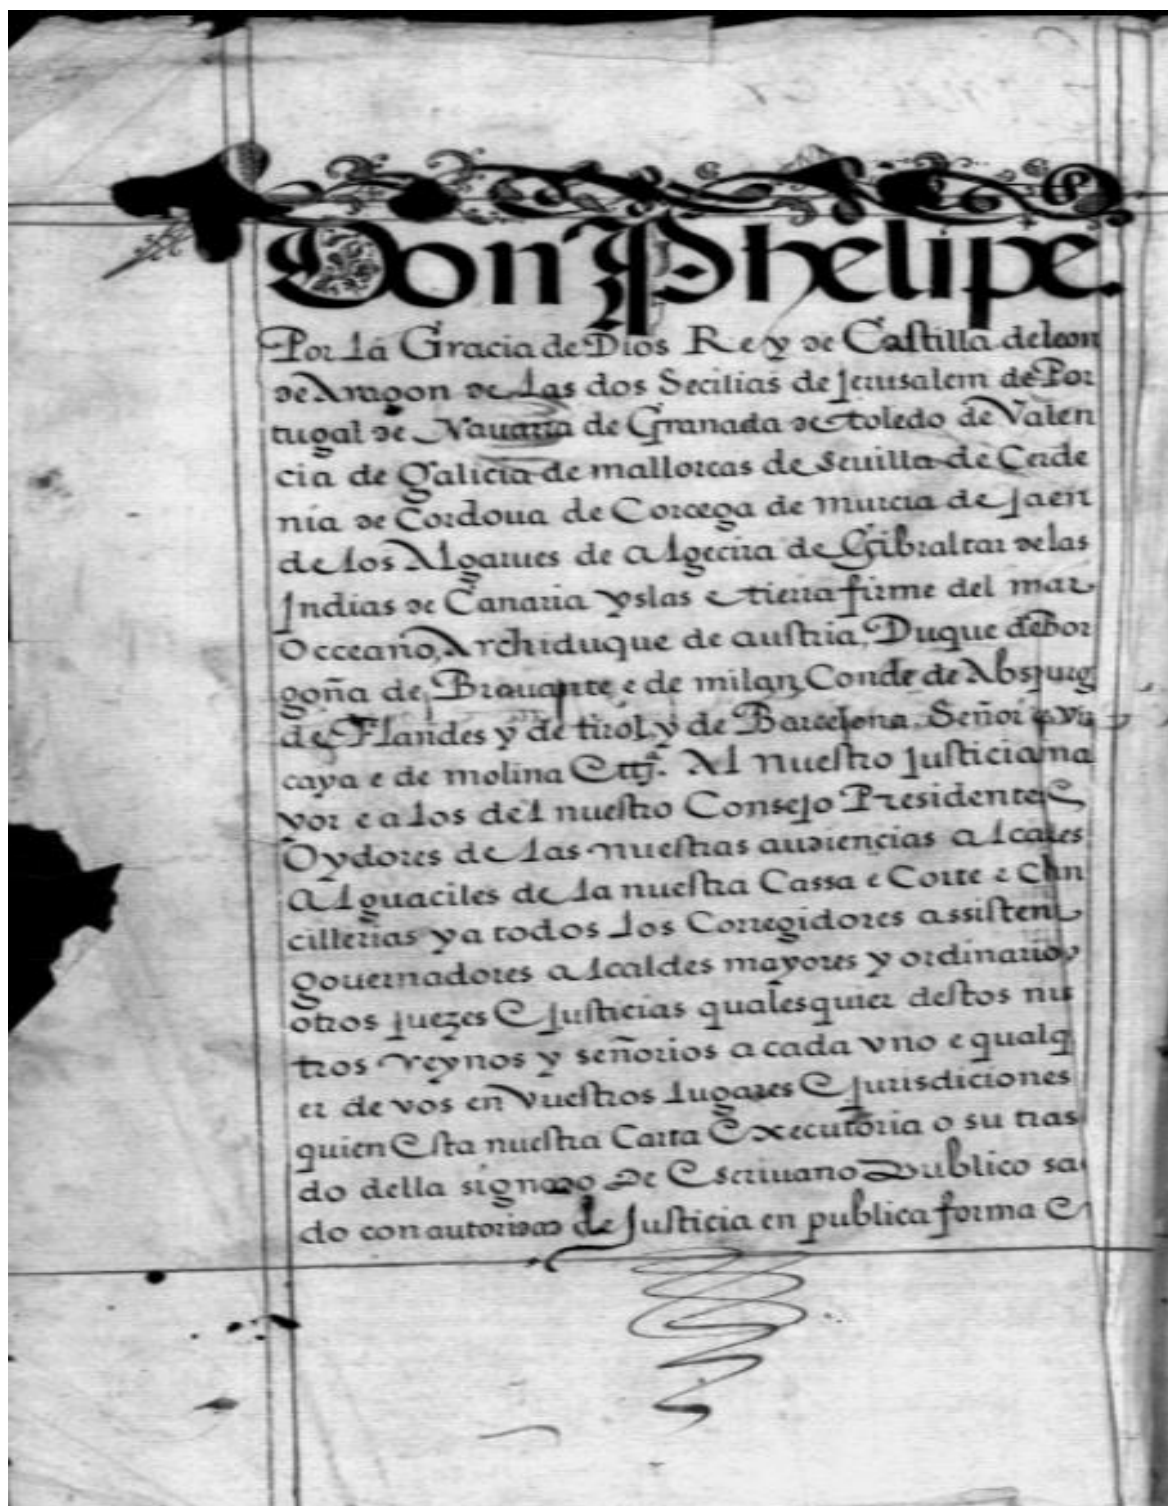 Don Phelipe.
Por la Gracia de Dios Rey de Castilla de leon
de Aragon de las dos Secilias de Jerusalem de Por
tugal de Nauarra de Granada de toledo de Valen
cia de Galicia de mallorcas de seuilla de Cerde
nia de Cordoua de Corcega de murcia de Jaen
de los Algarues de algecira de Gibraltar de las
Indias de Canaria yslas e tierra firme del mar
Occeano, Archiduque de austria, Duque de Bor
goña de Brauante e de milan, Conde de Abspurg
de Flandes y de tirol y de Barcelona, Señor de Viz
caya e de molina Ettª. Al nuestro Justicia ma
yor e a los del nuestro Consejo Presidente E
Oydores de las nuestras audiencias alcales
Alguaciles de la nuestra Cassa e Corte e Chn
cillerias y a todos los Corregidores assisten
gouernadores alcaldes mayores y ordinarios
otros juezes E Justicias qualesquier destos nus
tros reynos y señorios a cada vno e qualq
er de vos en Vuestros lugares E jurisdiciones
quien Esta nuestra Carta Executoria o su tras
do della signado de Escriuano Publico sa
do con autoridad de Justicia en publica forma E